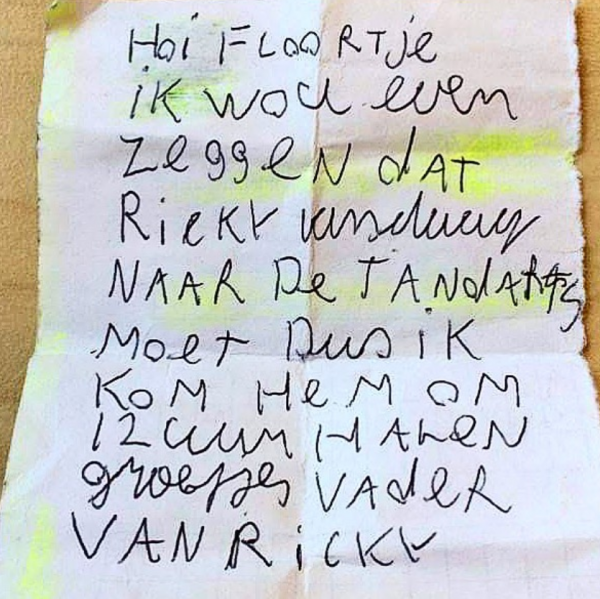 Hoi FLOORTje
iK wou even
zeggeN dAT
RicKY vandaag
NAAR De TANdARTS
Moet Dus iK
KOM HeM OM
12 uuR HALeN
groetjes VAdeR
VAN RicKY